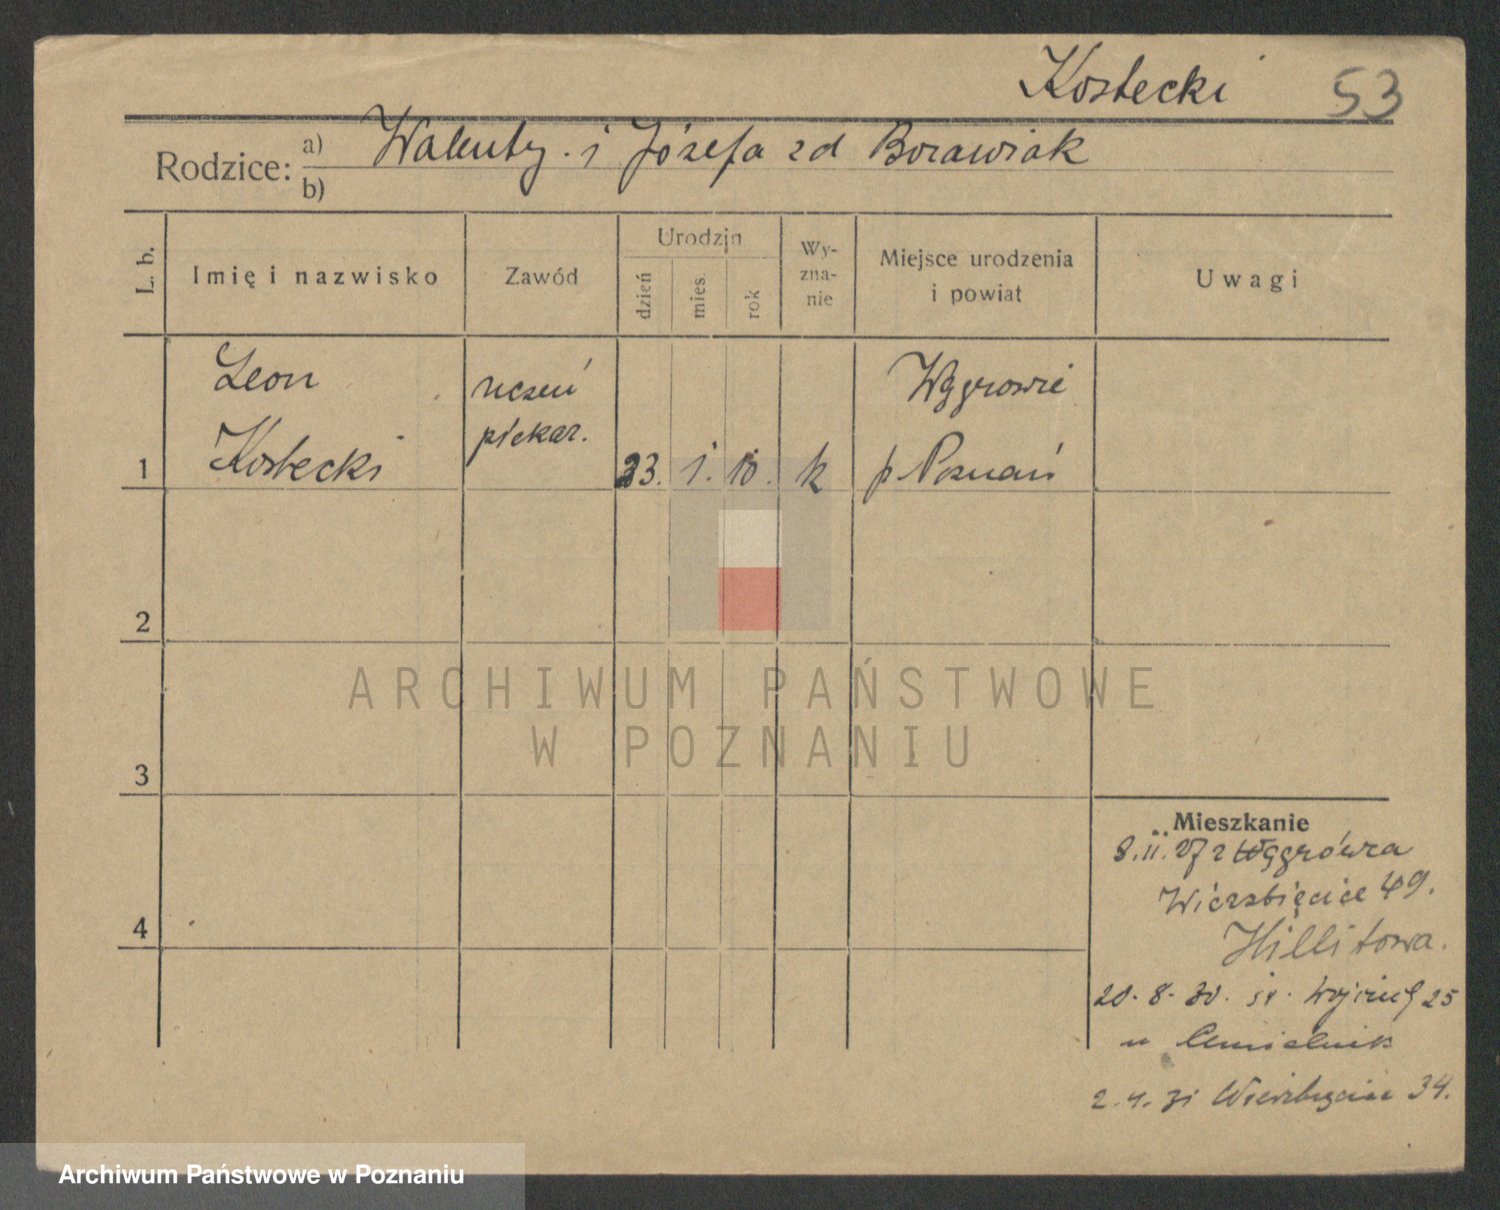 Kostecki 53
Rodzice: a) Walenty i Józefa zd Borawiak
b)
L. b.
Imię i nazwisko
Zawód
Urodzin
dzień
mies.
rok
Wy-
zna-
nie
Miejsce urodzenia
i powiat
Uwagi
Leon
Kostecki
uczeń
piekar.
1
23. 1. 10. k
Wągrowie
p Poznań
2
3
4
ARCHIWUM PAŃSTWOWE
W POZNANIU
Mieszkanie
8.II.27 z Węgrówca
Wierzbięcice 49.
20.8.30. św. Wojciech 25
u
2.4.31 Wierzbięcice 34.
Archiwum Państwowe w Poznaniu